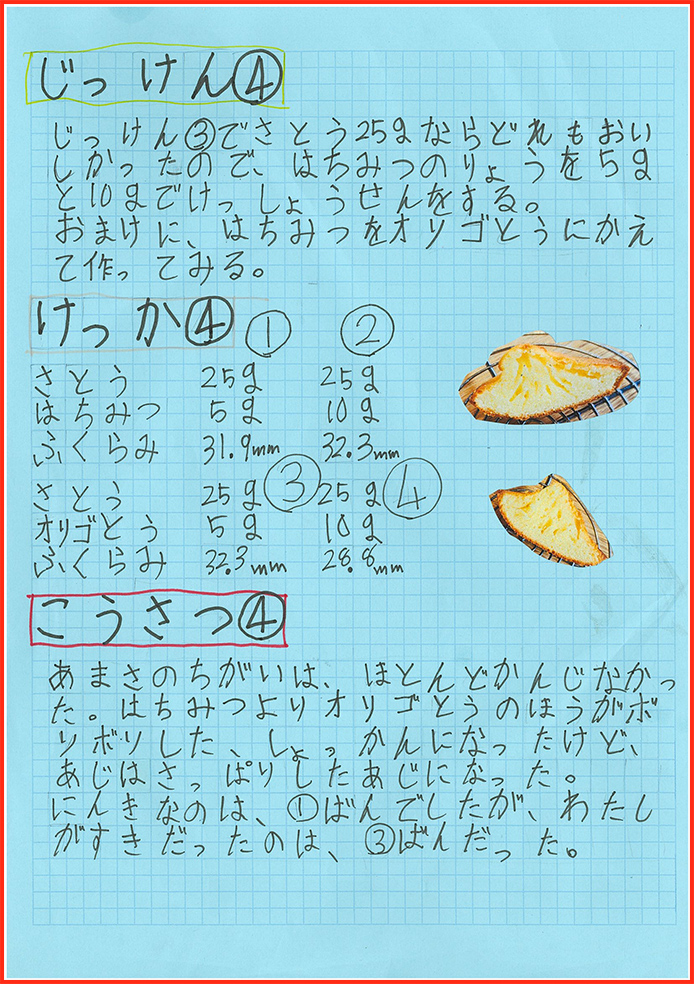 じっけん④
じっけん③でさとう25gならどれもおい
しかったので、はちみつのりょうを5g
と10gでけっしょうせんをする。
おまけに、はちみつをオリゴとうにかえ
て作ってみる。
けっか④ ① ②
さとう 25g 25g
はちみつ 5g 10g
ふくらみ 31.9mm 32.3mm
③ ④
さとう 25g 25g
オリゴとう 5g 10g
ふくらみ 32.3mm 28.8mm
こうさつ④
あまさのちがいは、ほとんどかんじなかっ
た。はちみつよりオリゴとうのほうがボ
リボリした、しょっかんになったけど、
あじはさっぱりしたあじになった。
にんきなのは、①ばんでしたが、わたし
がすきだったのは、③ばんだった。